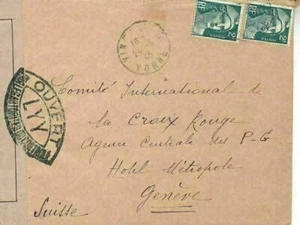 YONNE
OUVERT
LYY
Comité International de
la Croix Rouge
Agence Centrale des P-G
Hotel Métropole
Genève
Suisse